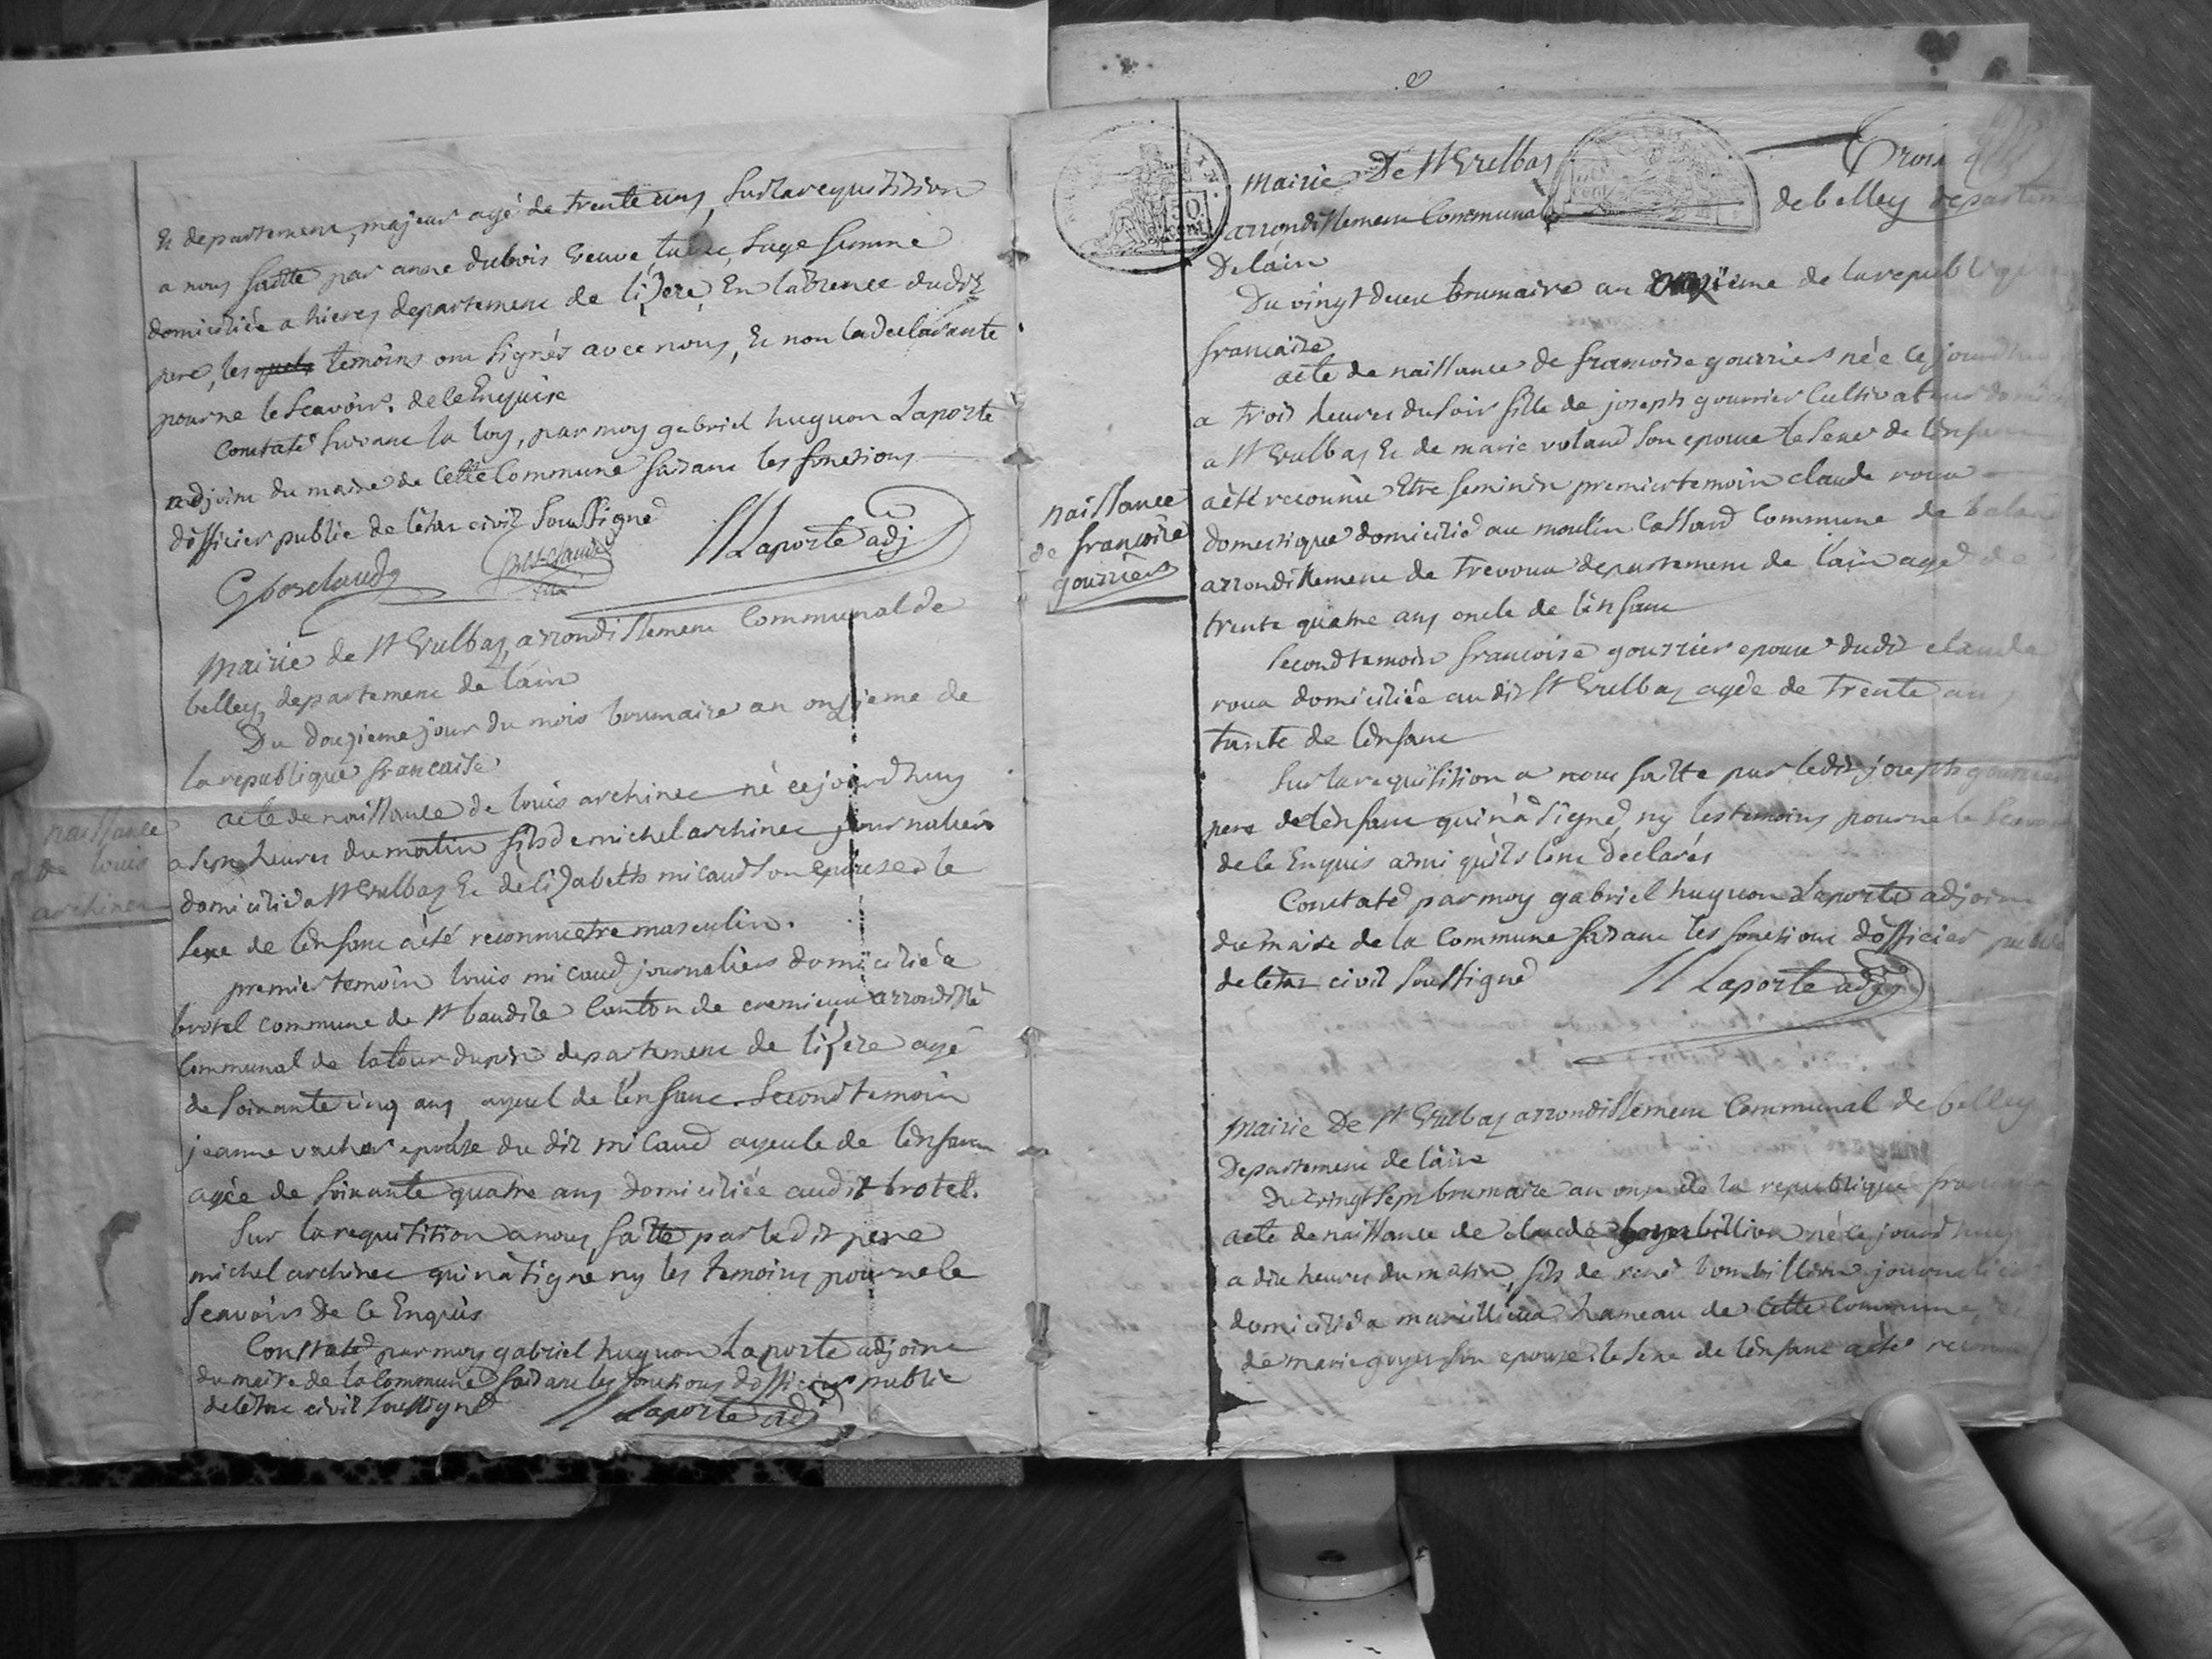 Et departement, majeur agé de trente ans, sur la requisition
a nous faitte par anne dubois veuve sage femme
domiciliée a hieres departement de l'izere, En l'absence dudit
pere, les quels temoins ont signés avec nous, Et non la declarante
pour ne le scavoir. de ce Enquise
Constaté suivant la loy, par moy gabriel huguon Laporte
adjoint du maire de cette Commune faisant les fonctions
d'officier public de l'état civil soussigné
Laporte adj
mairie de St Vulbaz, arrondissement Communal de
belley, departement de l'ain
Du douzieme jour du mois brumaire an onzieme de
la republique francaise
acte de naissance de louis archinec né cejourd'huy
a sept heures du matin fils de michel archinec journalier
domicilié a St Vulbaz Et d'elizabeth micaud son epouse le
sexe de l'enfant a été reconnu etre masculin.
premier temoin louis micaud journalier domicilié a
brotel commune de St baudile Canton de cremieux arrondissé
Communal de latourdupin departement de l'izere agé
de soixante cinq ans ayeul de l'enfant. Second temoin
jeanne vacher epouse du dit micaud ayeule de l'enfant
agée de soixante quatre ans domiciliée audit brotel.
Sur la requisition a nous faitte par ledit pere
michel archinec qui n'a signé ny les temoins pour ne le
scavoir De ce Enquis
Constaté par moy gabriel huguon Laporte adjoint
du maire de la commune faisant les fonctions d'officier public
de l'état civil soussigné Laporte adj
naissance
de louis
archinec
mairie De St Vulbaz
arrondissement Communal de belley departement
De l'ain
Du vingt deux brumaire an onzieme de la republique
francaise
acte de naissance de francoise gourrier née cejourdhui
a trois heures du soir fille de joseph gourrier Cultivateur
a St Vulbaz Et de marie voland son epouse le sexe de l'enfant
a été reconnu Etre feminin premier temoin claude roux
domestique domicilié au moulin Cassard Commune de
arrondissement de trevoux departement de l'ain agé de
trente quatre ans oncle de l'enfant
Second temoin francoise gourrier epouse dudit claude
roux domiciliée audit St Vulbaz agée de trente ans
tante de l'enfant
Sur la requisition a nous faitte par ledit joseph gourrier
pere de l'enfant qui n'a signé ny les temoins pour ne le scavoir
de ce Enquis ainsi qu'ils l'ont declarés
Constaté par moy gabriel huguon Laporte adjoint
du maire de la Commune faisant les fonctions d'officier public
de l'état civil soussigné Laporte adj
naissance
de francoise
gourrier
mairie De St Vulbaz arrondissement Communal de belley
Departement de l'ain
Du vingt sept brumaire an onze de la republique
acte de naissance de claude né cejourd'huy
a dix heures du matin, fils de rené bombillion journalier
domicilié a marcillieux hameau de cette Commune,
de marie goyet son epouse le sexe de l'enfant a été reconnu